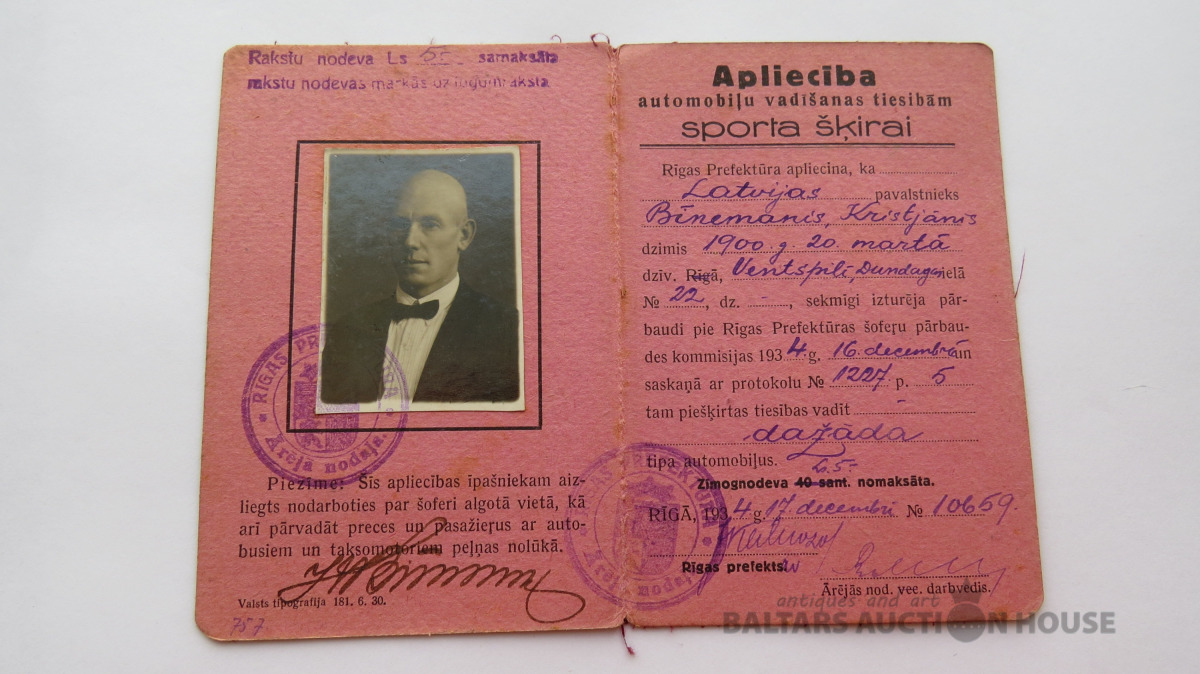 Rakstu nodeva Ls 5.- samaksāta
rakstu nodevas markās uz lūgumraksta
RĪGAS PREFEKTŪRA
Ārēja nodaļa
Piezīme: Šīs apliecības īpašniekam aiz-
liegts nodarboties par šoferi algotā vietā, kā
arī pārvadāt preces un pasažieŗus ar auto-
busiem un taksomotoriem peļņas nolūkā.
Valsts tipografija 181. 6. 30.
757
Apliecība
automobiļu vadīšanas tiesībām
sporta šķirai
Rīgas Prefektūra apliecina, ka
Latvijas pavalstnieks
Bīnemanis, Kristjānis
dzimis 1900. g. 20. martā
dzīv. Rīgā, Ventspilī, Dundagas ielā
№ 22, dz. -, sekmīgi izturēja pār-
baudi pie Rīgas Prefektūras šofeŗu pārbau-
des kommisijas 1934. g. 16. decembrī un
saskaņā ar protokolu № 1227. p. 5
tam piešķirtas tiesības vadīt -
dažāda
tipa automobiļus.
Ls. 5.-
Zīmognodeva 40 sant. nomaksāta.
RĪGĀ, 1934. g. 17. decembrī № 10659.
RĪGAS PREFEKTŪRA
Ārēja nodaļa
Rīgas prefekts
Ārējās nod. vec. darbvedis.
antiques and art
BALTARS AUCTION HOUSE